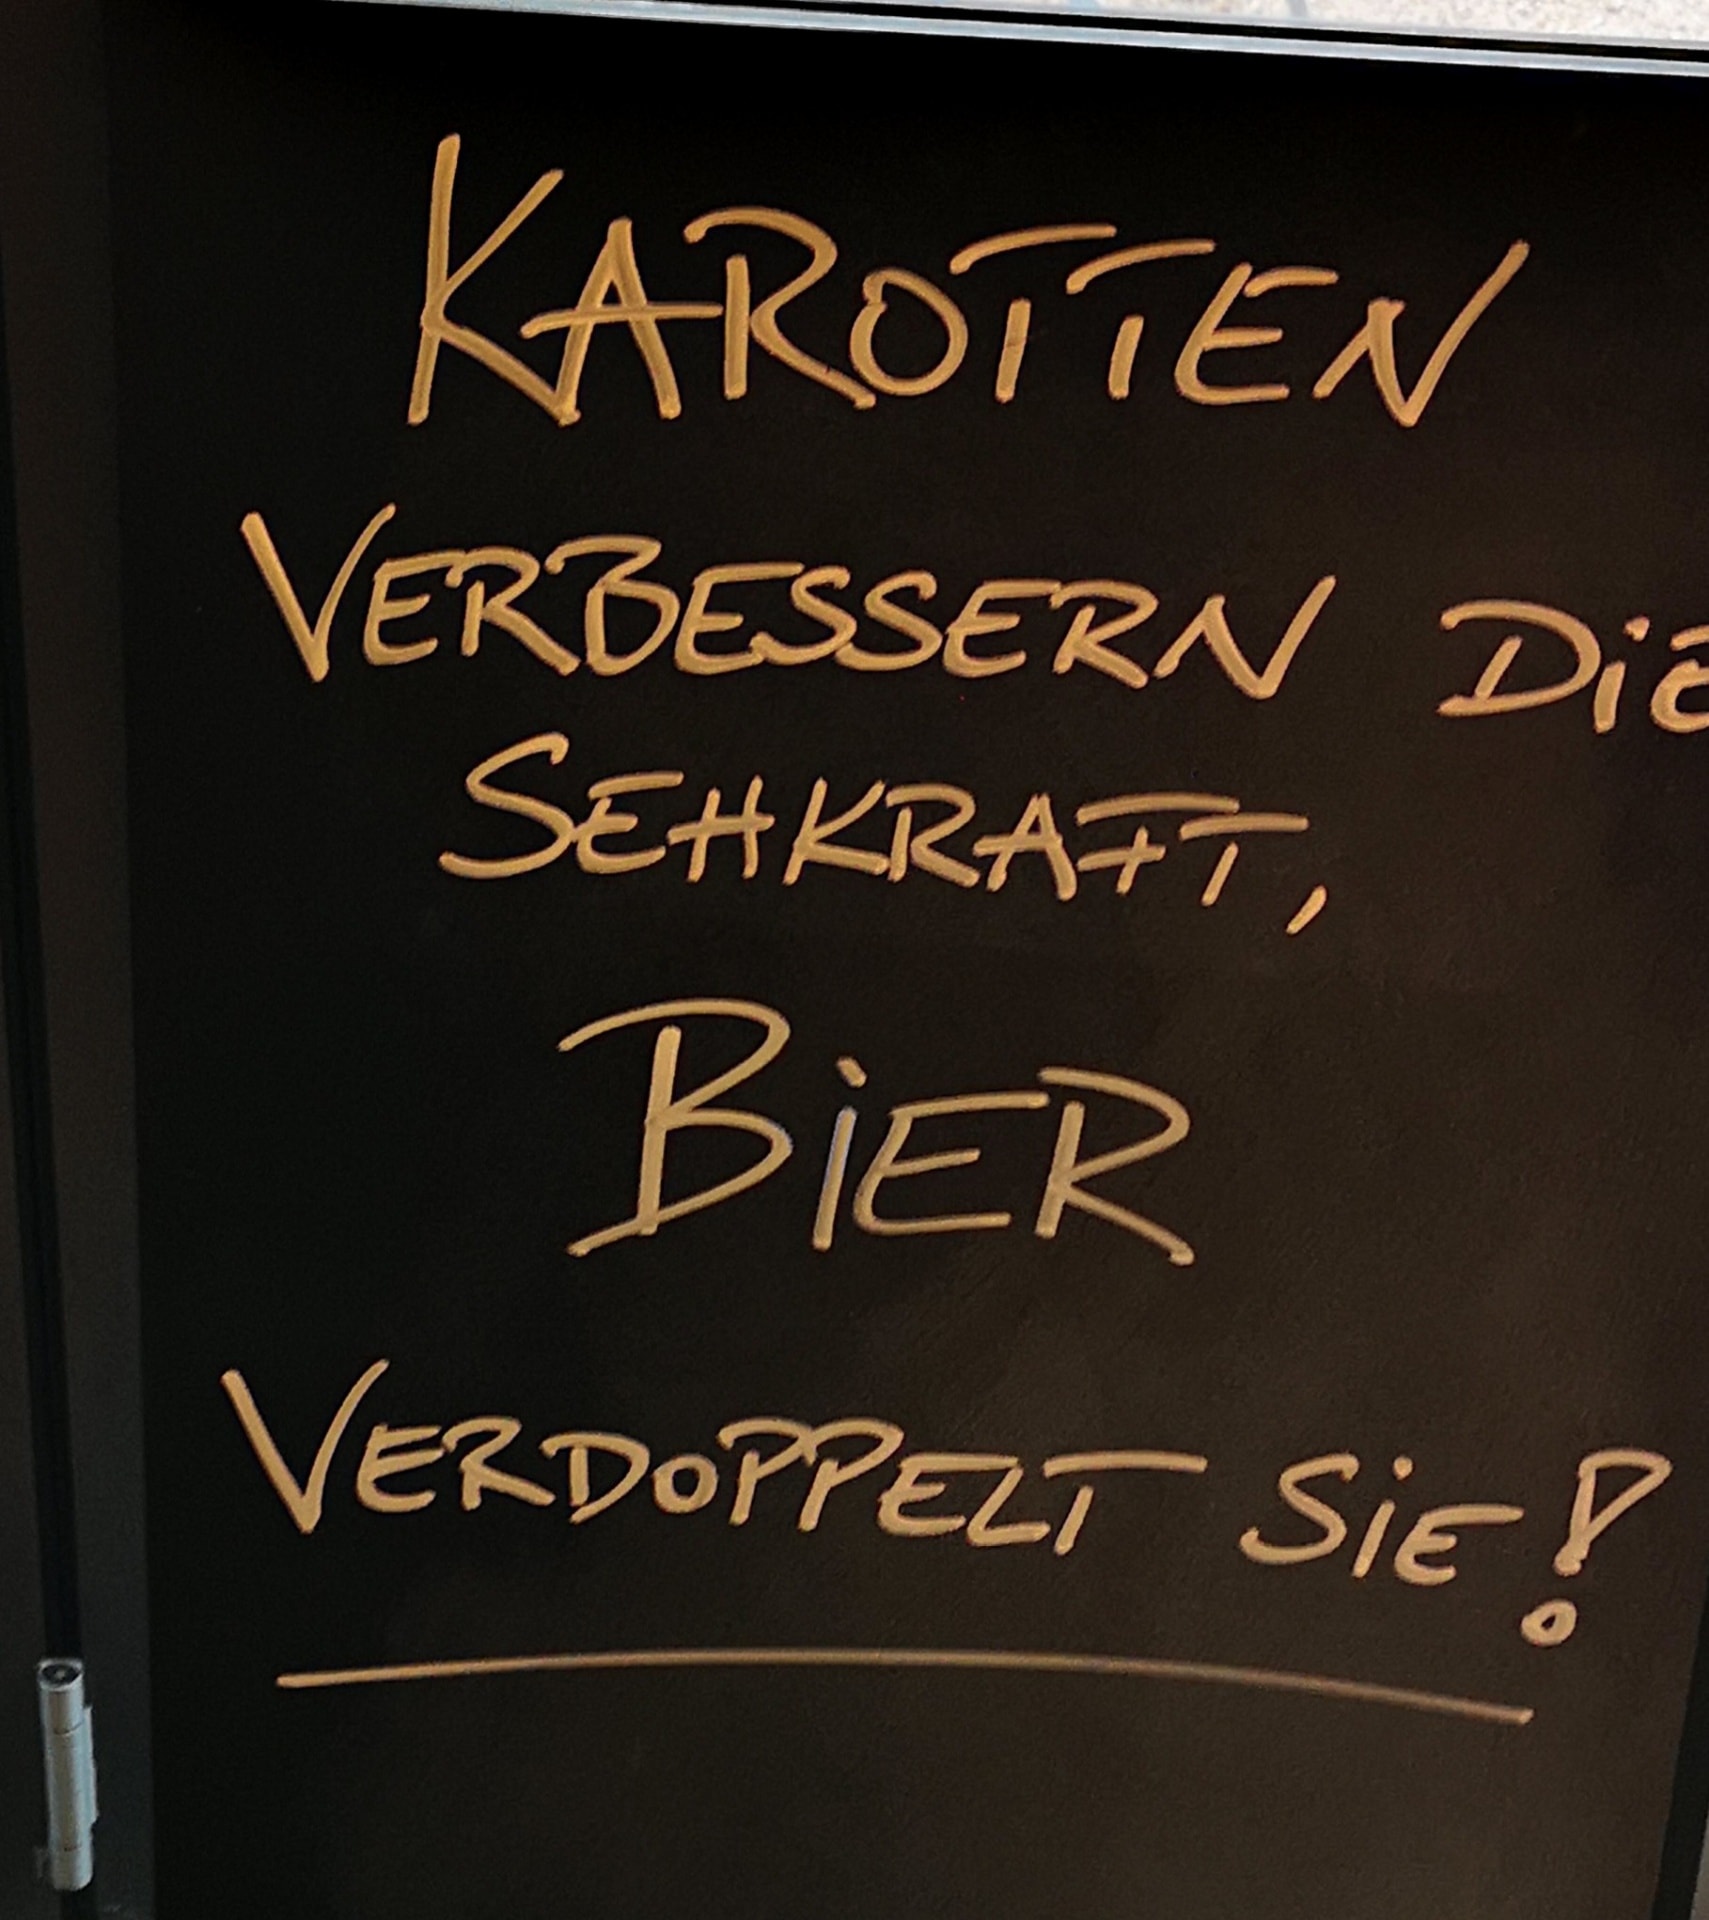 KAROTTEN
VERBESSERN DiE
SEHKRAFT,
BiER
VERDOPPELT SiE!